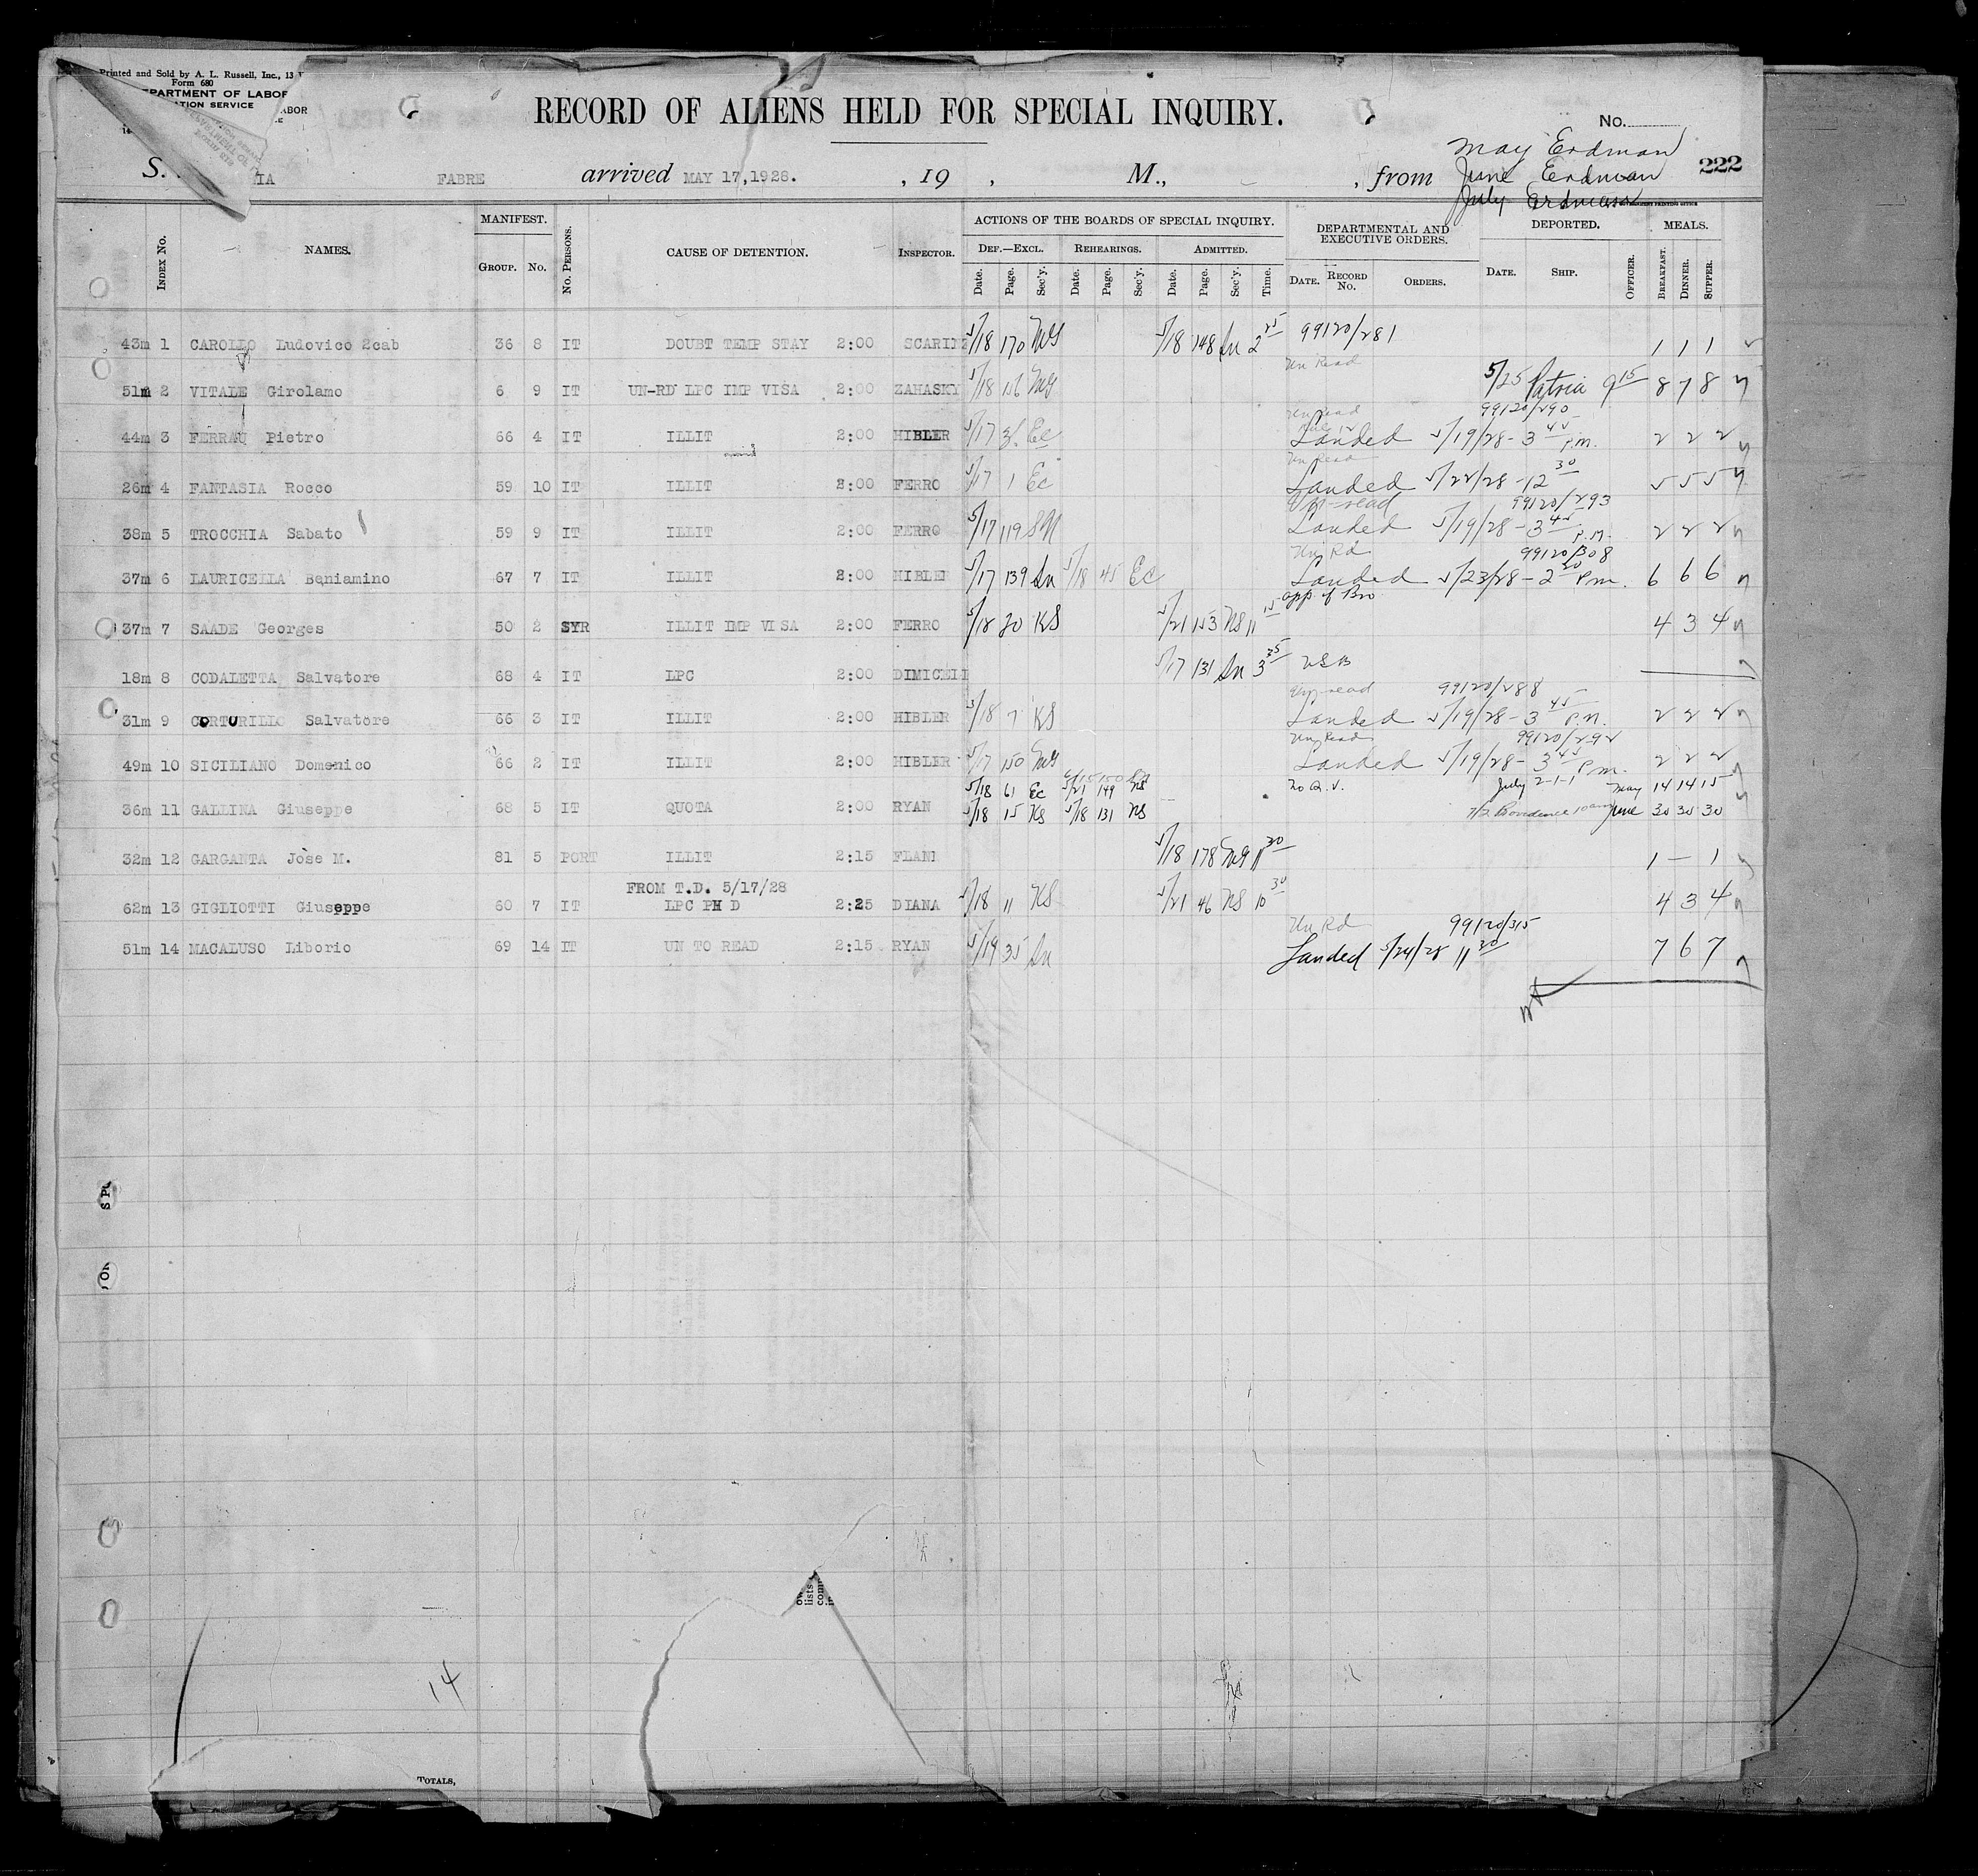 Printed and Sold by A. L. Russell, Inc., 13
Form 680
DEPARTMENT OF LABOR
ATION SERVICE
RECORD OF ALIENS HELD FOR SPECIAL INQUIRY.
No.
May Erdman
June Erdman
July Erdman
222
S. IA FABRE arrived MAY 17,1928. , 19 , M., , from
INDEX No. NAMES. MANIFEST. GROUP. No. No. PERSONS. CAUSE OF DETENTION. INSPECTOR. ACTIONS OF THE BOARDS OF SPECIAL INQUIRY. DEPARTMENTAL AND EXECUTIVE ORDERS. DEPORTED. MEALS.
DEF.—EXCL. REHEARINGS. ADMITTED.
Date. Page. Sec'y. Date. Page. Sec'y. Date. Page. Sec'y. Time. DATE. RECORD No. ORDERS. DATE. SHIP. OFFICER. BREAKFAST. DINNER. SUPPER.
43m 1 CAROLLO Ludovico 2cab 36 8 IT DOUBT TEMP STAY 2:00 SCARI 5/18 170 MG 5/18 148 Sn 2 25 99120/281 1 1 1
Un Read
51m 2 VITALE Girolamo 6 9 IT UN-RD LPC IMP VISA 2:00 ZAHASKY 5/18 156 MG 5/25 Patria 9 15 8 7 8
Un read 99120/290
44m 3 FERRAU Pietro 66 4 IT ILLIT 2:00 HIBLER 5/17 Ec Landed 5/19/28 - 3 45 P.M. 2 2 2
Un read
26m 4 FANTASIA Rocco 59 10 IT ILLIT 2:00 FERRO 5/17 1 Ec Landed 5/22/28 - 12 30 5 5 5
Un-read 99120/293
38m 5 TROCCHIA Sabato 59 9 IT ILLIT 2:00 FERRO 5/17 119 SN Landed 5/19/28 - 3 45 P.M. 2 2 2
Un Rd 99120/308
37m 6 LAURICELLA Beniamino 67 7 IT ILLIT 2:00 HIBLER 5/17 139 Sn 5/18 45 Ec Landed 5/23/28 - 2 30 P.m. 6 6 6
app. of Bro
37m 7 SAADE Georges 50 2 SYR ILLIT IMP VISA 2:00 FERRO 5/18 20 KS 5/21 153 NS 11 15 4 3 4
18m 8 CODALETTA Salvatore 68 4 IT LPC 2:00 DIMICELI 5/17 131 Sn 3 35
Un-read 99120/288
31m 9 CORTURILLO Salvatore 66 3 IT ILLIT 2:00 HIBLER 5/18 7 KS Landed 5/19/28 - 3 45 P.M. 2 2 2
Un Read 99120/292
49m 10 SICILIANO Domenico 66 2 IT ILLIT 2:00 HIBLER 5/17 150 MG Landed 5/19/28 - 3 45 P.m. 2 2 2
5/18 61 Ec 5/21 149 NS no Q.V. July 2-1-1 May 14 14 15
36m 11 GALLINA Giuseppe 68 5 IT QUOTA 2:00 RYAN 5/18 15 KS 5/18 131 NS 7/2 Providence 10am June 30 30 30
32m 12 GARGANTA Jose M. 81 5 PORT ILLIT 2:15 FLANI 5/18 178 MG 11 30 1 — 1
FROM T.D. 5/17/28
62m 13 GIGLIOTTI Giuseppe 60 7 IT LPC PH D 2:25 DIANA 5/18 11 KS 5/21 46 NS 10 30 4 3 4
Un Rd 99120/315
51m 14 MACALUSO Liborio 69 14 IT UN TO READ 2:15 RYAN 5/19 35 Sn Landed 5/24/28 11 30 7 6 7
14
TOTALS,